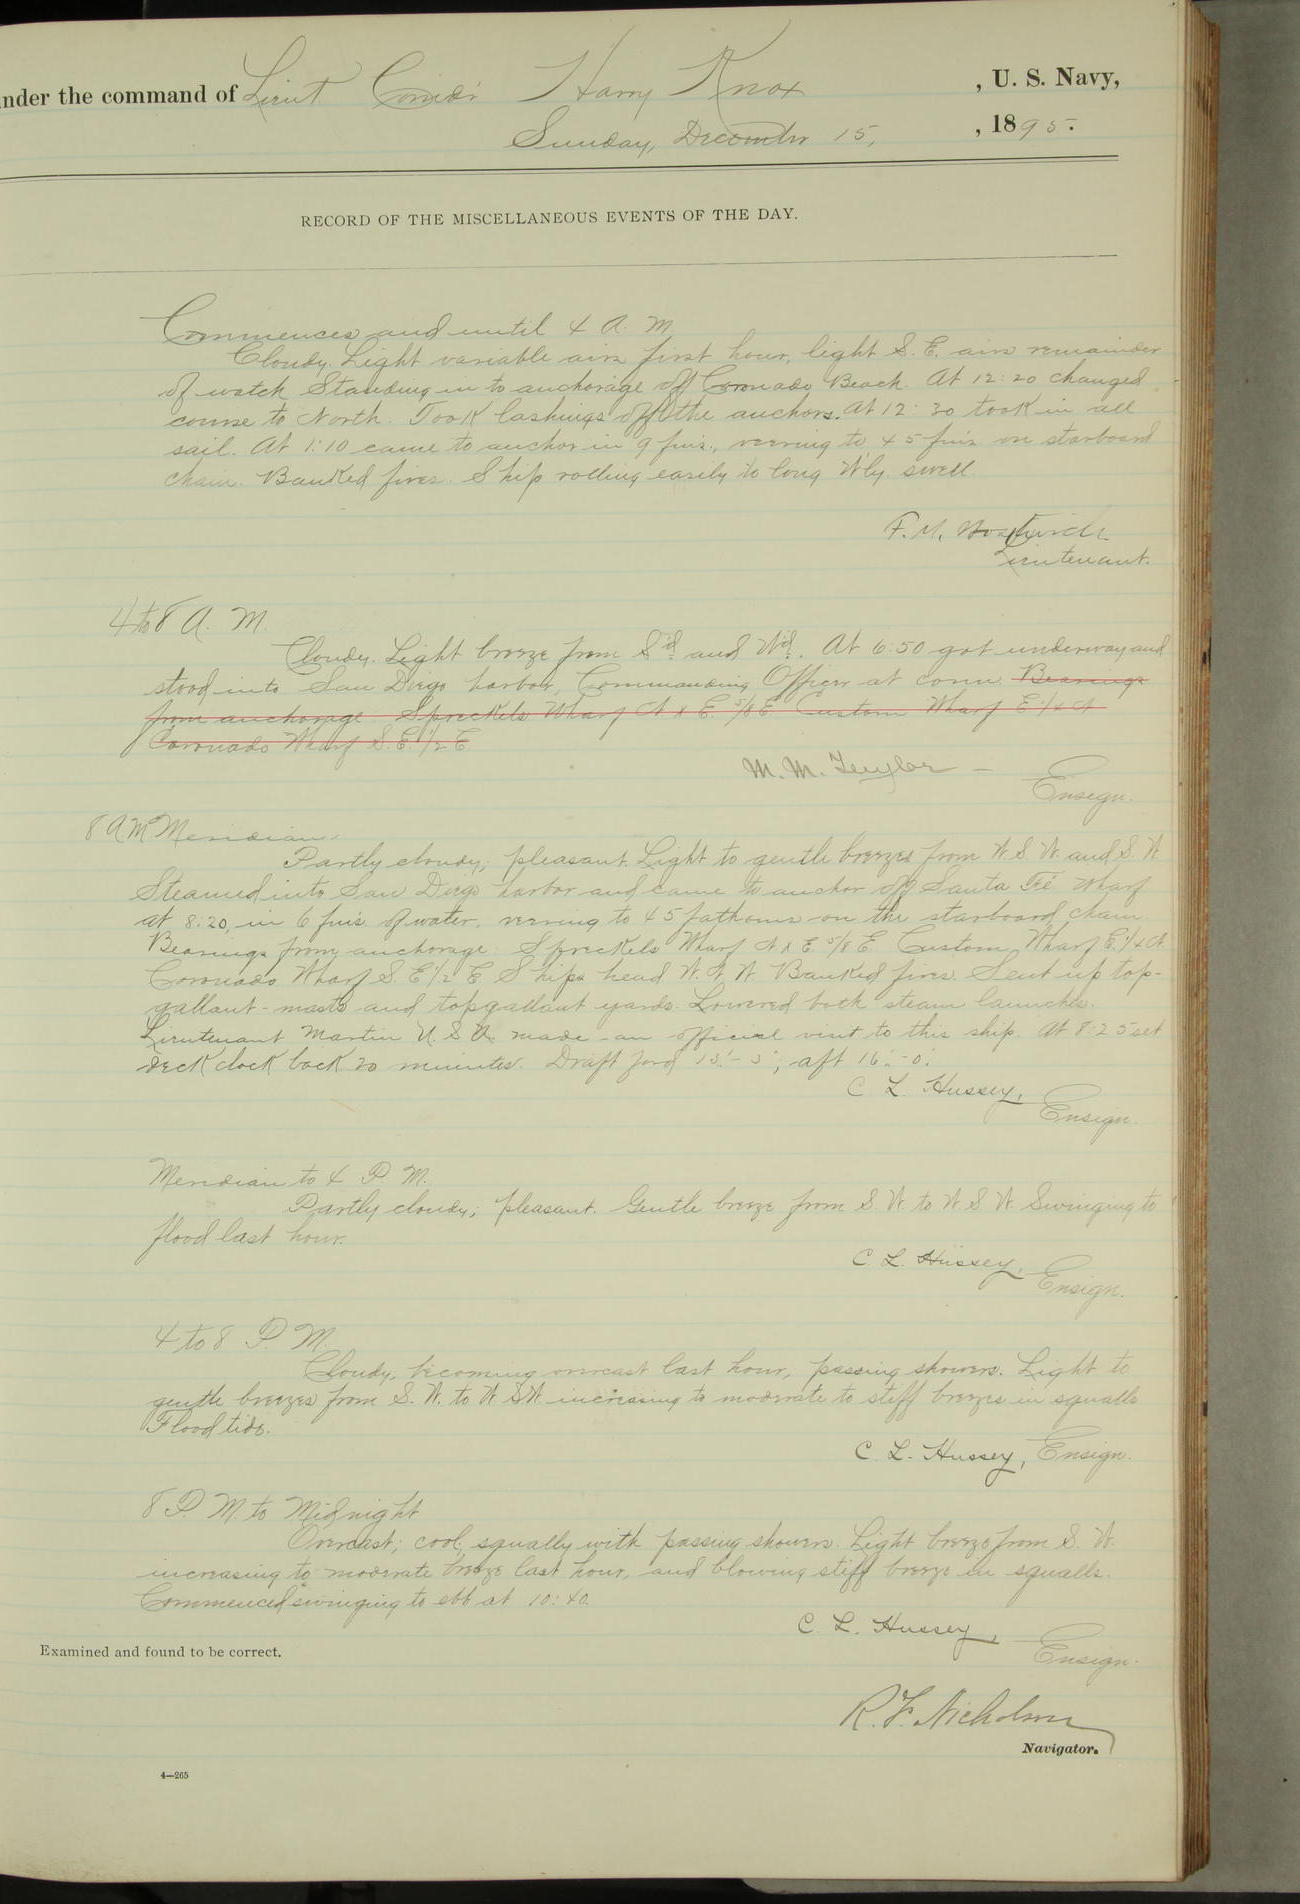 under the command of Lieut Comdr Harry Knox, U. S. Navy,
Sunday, December 15, 1895.
RECORD OF THE MISCELLANEOUS EVENTS OF THE DAY.
Commences and until 4 A. M.
Cloudy. Light variable airs first hour, light S. E. airs remainder
of watch. Standing in to anchorage off Coronado Beach. At 12:20 changed
course to North. Took lashings off the anchors. At 12:30 took in all
sail. At 1:10 came to anchor in 9 fms., veering to 45 fms on starboard
chain. Banked fires. Ship rolling easily to long W'ly. swell.
F. M.
Lieutenant.
4 to 8 A. M.
Cloudy. Light breeze from S'd. and W'd. At 6:50 got underway and
stood into San Diego harbor, Commanding Officer at conn. Bearings
from anchorage Spreckels Wharf N x E 5/8 E Custom Wharf E 1/4 N
Coronado Wharf S. E. 1/2 E
M. M. Taylor
Ensign.
8 A M Meridian.
Partly cloudy; pleasant. Light to gentle breezes from W. S. W. and S. W.
Steamed into San Diego harbor and came to anchor off Santa Fé Wharf
at 8:20, in 6 fms. of water, veering to 45 fathoms on the starboard chain
Bearings from anchorage: Spreckels Wharf N x E 5/8 E Custom Wharf E. 1/4 N
Coronado Wharf S. E 1/2 E Ships head W. N. W. Banked fires. Sent up top-
gallant-masts and topgallant yards. Lowered both steam launches.
Lieutenant Martin U. S. A. made an official visit to this ship. At 8:25 set
deck clock back 20 minutes. Draft ford 13'-3"; aft 16'-0".
C. L. Hussey,
Ensign.
Meridian to 4 P. M.
Partly cloudy; pleasant. Gentle breeze from S. W. to W. S. W. Swinging to
flood last hour.
C. L. Hussey,
Ensign.
4 to 8 P. M.
Cloudy, becoming overcast last hour, passing showers. Light to
gentle breezes from S. W. to W S W increasing to moderate to stiff breezes in squalls
Flood tide.
C. L. Hussey, Ensign.
8 P. M. to Midnight
Overcast; cool, squally with passing showers. Light breeze from S. W.
increasing to moderate breeze last hour, and blowing stiff breeze in squalls.
Commenced swinging to ebb at 10:40.
C. L. Hussey,
Ensign.
Examined and found to be correct.
R. F. Nicholson
Navigator.
4—265